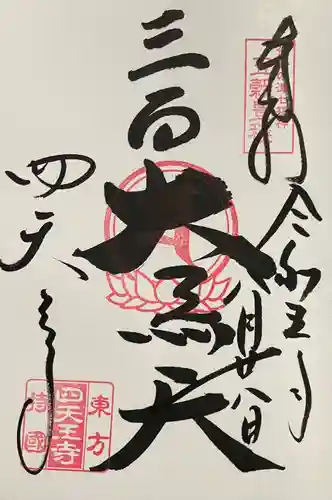 奉拝
令和五年
八月廿八日
三面
大黒天
四天王寺
五穀豊穣
東方
四天王寺
持國